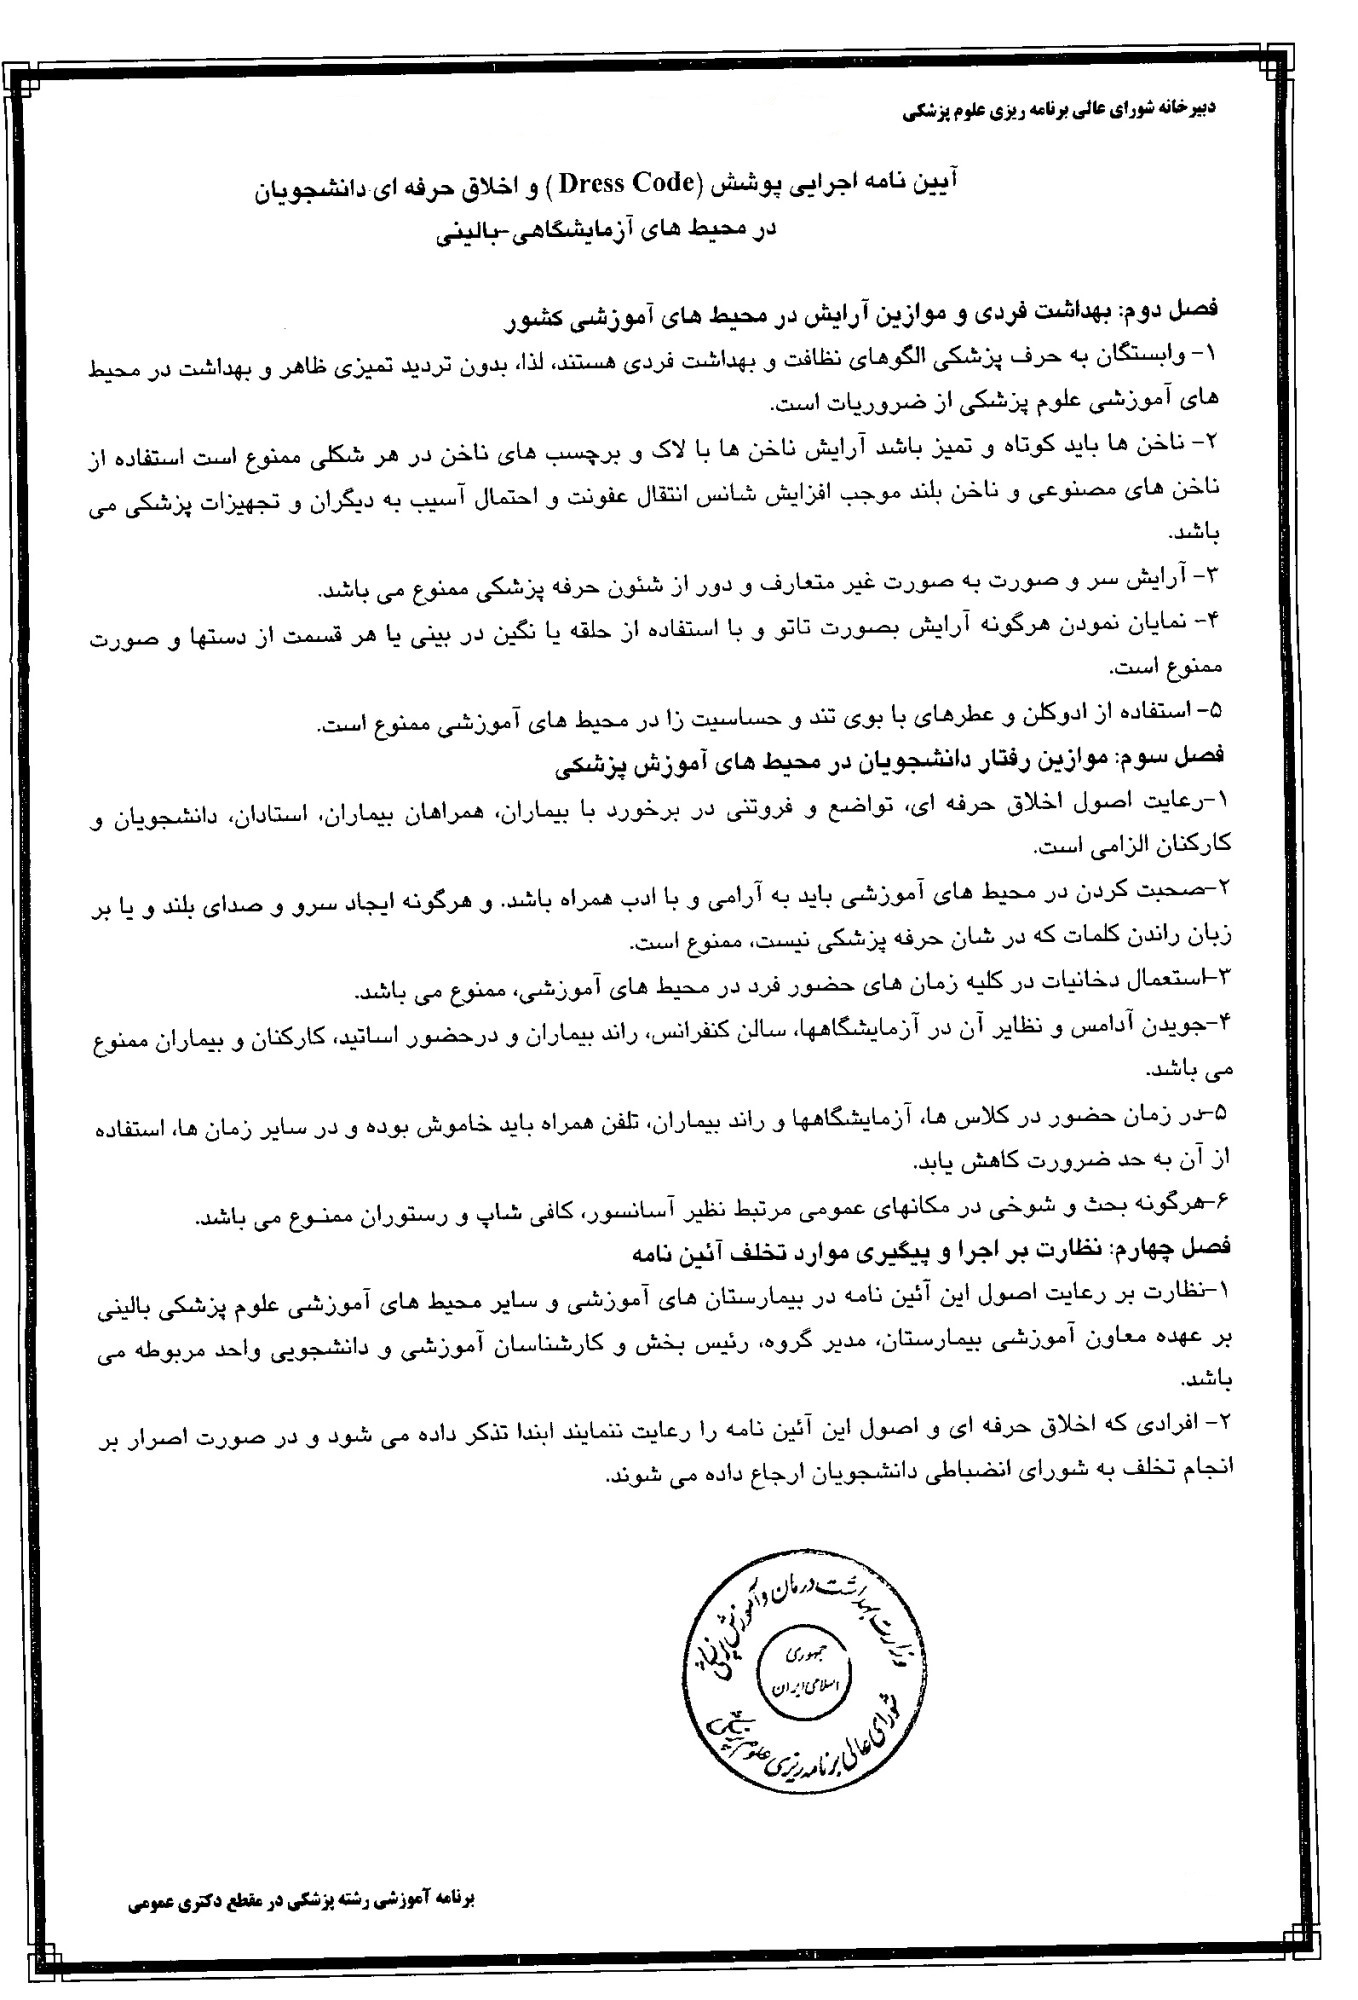 دبیرخانه شورای عالی برنامه ریزی علوم پزشکی
آیین نامه اجرایی پوشش (Dress Code) و اخلاق حرفه ای دانشجویان
در محیط های آزمایشگاهی-بالینی
فصل دوم: بهداشت فردی و موازین آرایش در محیط های آموزشی کشور
۱- وابستگان به حرف پزشکی الگوهای نظافت و بهداشت فردی هستند، لذا، بدون تردید تمیزی ظاهر و بهداشت در محیط
های آموزشی علوم پزشکی از ضروریات است.
۲- ناخن ها باید کوتاه و تمیز باشد آرایش ناخن ها با لاک و برچسب های ناخن در هر شکلی ممنوع است استفاده از
ناخن های مصنوعی و ناخن بلند موجب افزایش شانس انتقال عفونت و احتمال آسیب به دیگران و تجهیزات پزشکی می
باشد.
۳- آرایش سر و صورت به صورت غیر متعارف و دور از شئون حرفه پزشکی ممنوع می باشد.
۴- نمایان نمودن هرگونه آرایش بصورت تاتو و با استفاده از حلقه یا نگین در بینی یا هر قسمت از دستها و صورت
ممنوع است.
۵- استفاده از ادوکلن و عطرهای با بوی تند و حساسیت زا در محیط های آموزشی ممنوع است.
فصل سوم: موازین رفتار دانشجویان در محیط های آموزش پزشکی
۱-رعایت اصول اخلاق حرفه ای، تواضع و فروتنی در برخورد با بیماران، همراهان بیماران، استادان، دانشجویان و
کارکنان الزامی است.
۲-صحبت کردن در محیط های آموزشی باید به آرامی و با ادب همراه باشد. و هرگونه ایجاد سرو و صدای بلند و یا بر
زبان راندن کلمات که در شان حرفه پزشکی نیست، ممنوع است.
۳-استعمال دخانیات در کلیه زمان های حضور فرد در محیط های آموزشی، ممنوع می باشد.
۴-جویدن آدامس و نظایر آن در آزمایشگاهها، سالن کنفرانس، راند بیماران و درحضور اساتید، کارکنان و بیماران ممنوع
می باشد.
۵-در زمان حضور در کلاس ها، آزمایشگاهها و راند بیماران، تلفن همراه باید خاموش بوده و در سایر زمان ها، استفاده
از آن به حد ضرورت کاهش یابد.
۶-هرگونه بحث و شوخی در مکانهای عمومی مرتبط نظیر آسانسور، کافی شاپ و رستوران ممنوع می باشد.
فصل چهارم: نظارت بر اجرا و پیگیری موارد تخلف آئین نامه
۱-نظارت بر رعایت اصول این آئین نامه در بیمارستان های آموزشی و سایر محیط های آموزشی علوم پزشکی بالینی
بر عهده معاون آموزشی بیمارستان، مدیر گروه، رئیس بخش و کارشناسان آموزشی و دانشجویی واحد مربوطه می
باشد.
۲- افرادی که اخلاق حرفه ای و اصول این آئین نامه را رعایت ننمایند ابتدا تذکر داده می شود و در صورت اصرار بر
انجام تخلف به شورای انضباطی دانشجویان ارجاع داده می شوند.
وزارت بهداشت درمان و آموزش پزشکی
جمهوری
اسلامی ایران
شورای عالی برنامه ریزی علوم پزشکی
برنامه آموزشی رشته پزشکی در مقطع دکتری عمومی